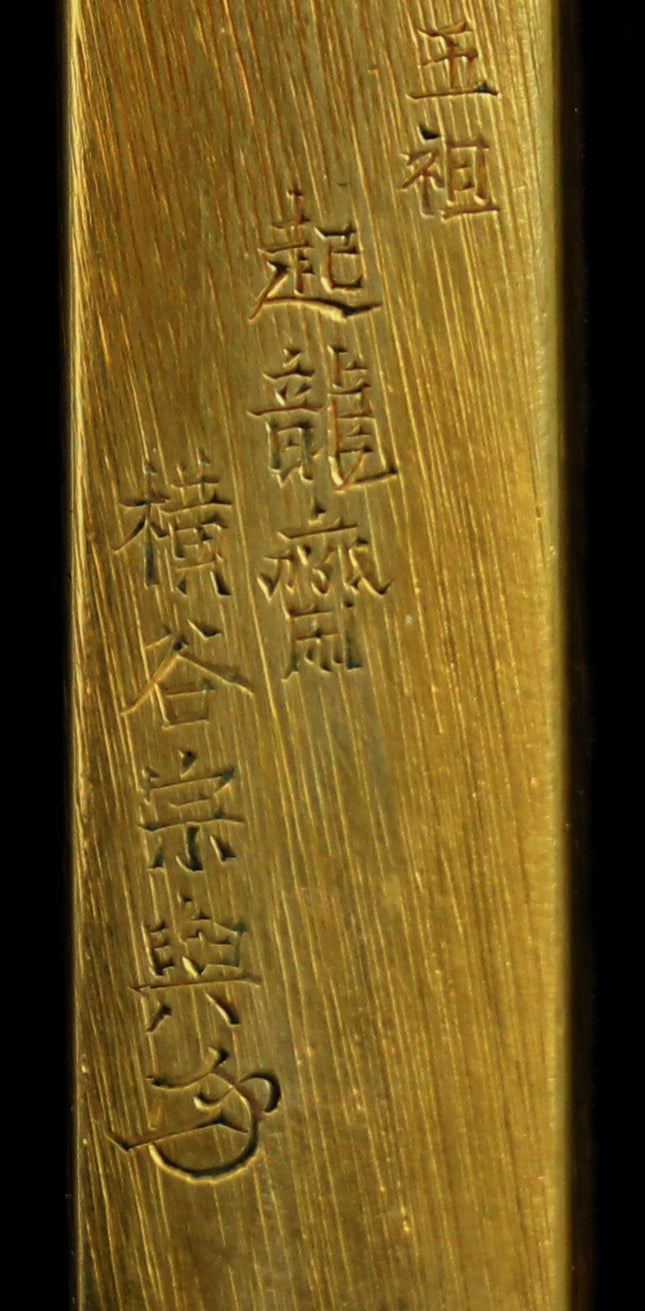 五祖
起龍齋
横谷宗與